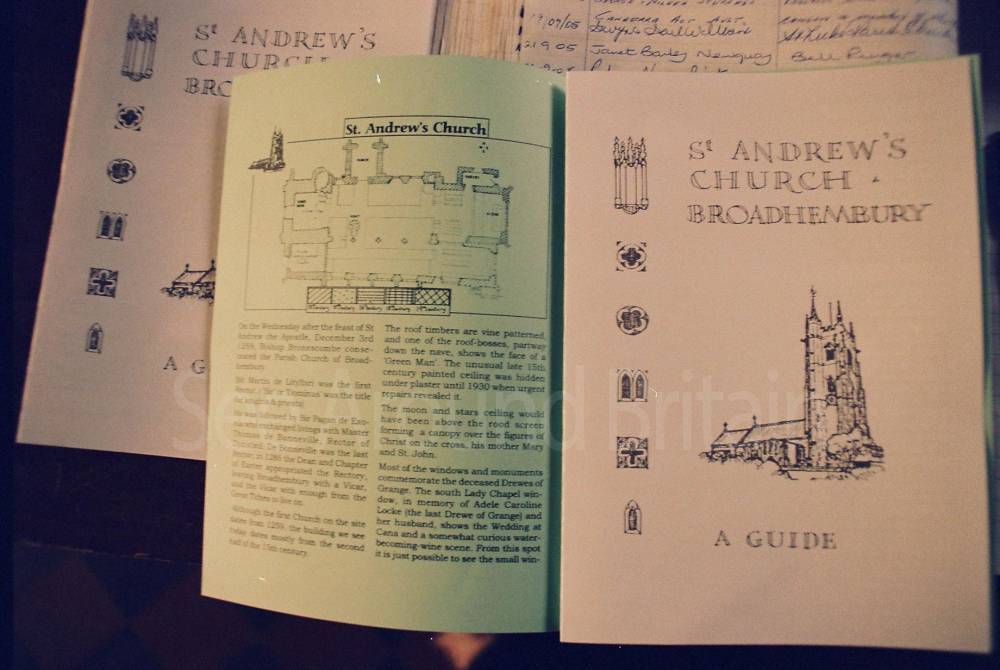 19/07/05
21 9 05 Janet Barley Newquay Bell Ringer
St ANDREW'S
CHURCH
BROADHEMBURY
A GUIDE
St ANDREW'S
CHURCH
BRO
A G
St. Andrew's Church
On the Wednesday after the feast of St
Andrew the Apostle, December 3rd
1259, Bishop Bronescombe conse-
crated the Parish Church of Broad-
hembury.
Sir Martin de Litylbiri was the first
Rector. ('Sir' or 'Dominus' was the title
for knights & priests)
He was followed by Sir Pagan de Exo-
nia who exchanged livings with Master
Thomas de Bonneville, Rector of
De Bonneville was the last
Rector; in 1286 the Dean and Chapter
of Exeter appropriated the Rectory,
leaving Broadhembury with a Vicar,
and the Vicar with enough from the
Great Tithes to live on.
Although the first Church on the site
dates from 1259, the building we see
today dates mostly from the second
half of the 15th century.
The roof timbers are vine patterned,
and one of the roof-bosses, partway
down the nave, shows the face of a
'Green Man'. The unusual late 15th
century painted ceiling was hidden
under plaster until 1930 when urgent
repairs revealed it.
The moon and stars ceiling would
have been above the rood screen
forming a canopy over the figures of
Christ on the cross, his mother Mary
and St. John.
Most of the windows and monuments
commemorate the deceased Drewes of
Grange. The south Lady Chapel win-
dow, in memory of Adele Caroline
Locke (the last Drewe of Grange) and
her husband, shows the Wedding at
Cana and a somewhat curious water-
becoming-wine scene. From this spot
it is just possible to see the small win-
See Around Britain